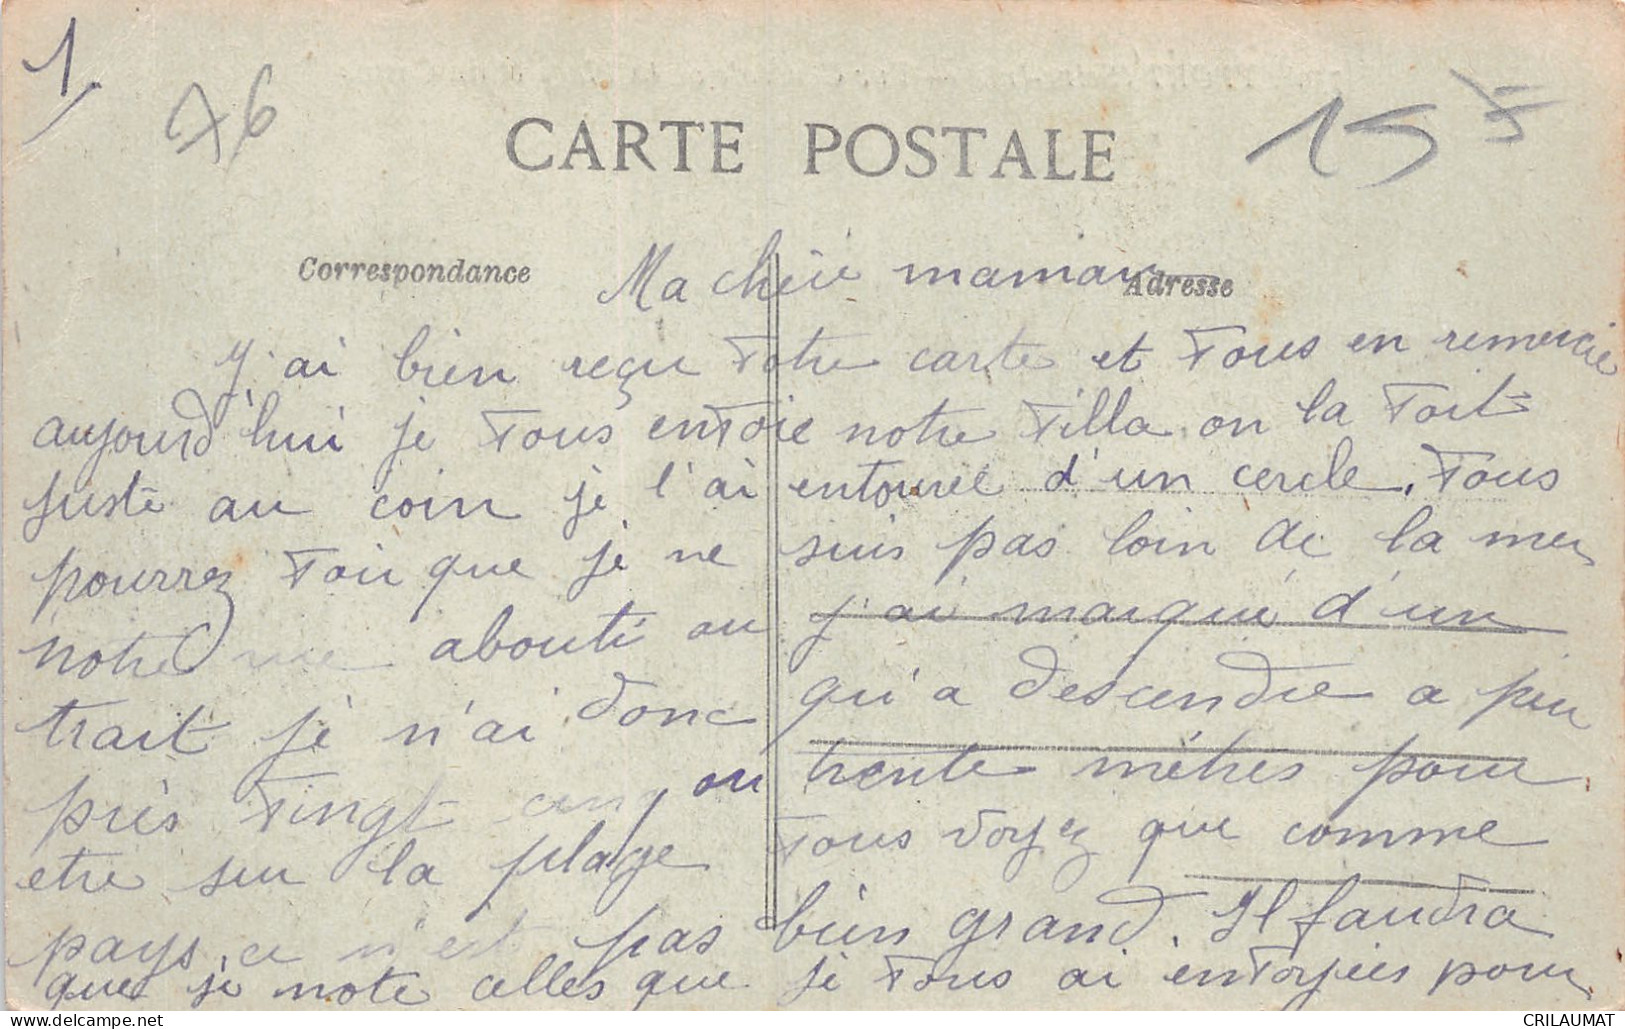 1
76
15
CARTE POSTALE
Correspondance
Adresse
Ma chère maman
J'ai bien reçu votre carte et vous en remercie
aujourd'hui je vous envoie notre villa on la voit
juste au coin je l'ai entourée d'un cercle. Vous
pourrez voir que je ne suis pas loin de la mer
notre rue abouti ou j'ai marqué d'un
trait je n'ai donc qu'a descendre a peu
près vingt cinq ou trente mètres pour
etre sur la plage vous voyez que comme
pays ce n'est pas bien grand. Il faudra
que je note celles que je vous ai envoyées pour
CRILAUMAT